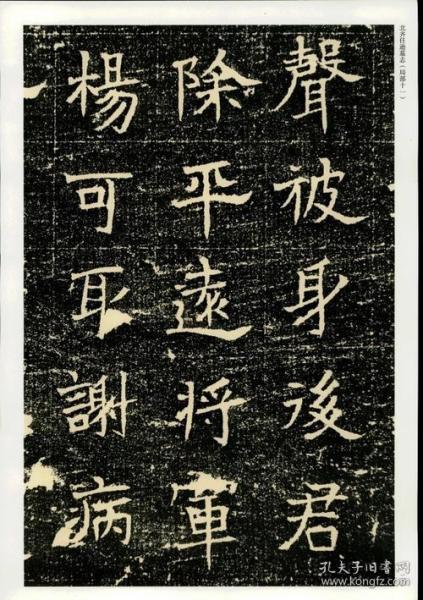 北齐任逊墓志（局部十一）
聲被身後君
除平遠将軍
楊可取謝病
孔夫子旧书网
www.kongfz.com